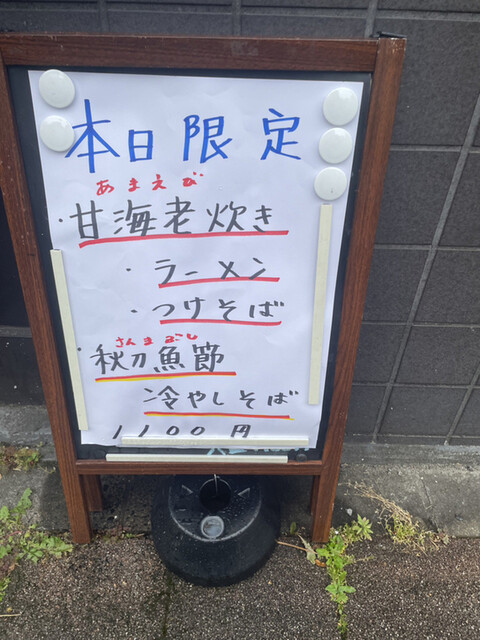 本日限定
あまえび
・甘海老炊き
・ラーメン
・つけそば
さんまぶし
・秋刀魚節
冷やしそば
1100円